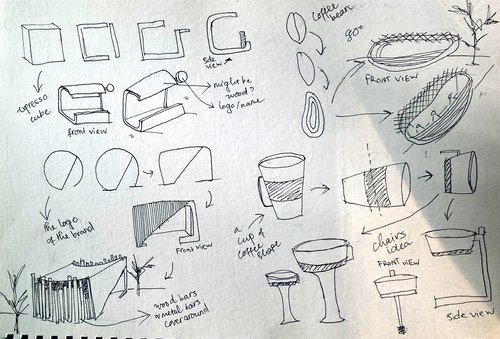 coffee
bean
side
view
FRONT VIEW
espresso
cube
front view
might be
wood?
logo/name
the logo
of the brand
Front view
a
cup of
coffee
slope
chairs
idea
FRONT VIEW
wood bars
or metal bars
cover around
side view